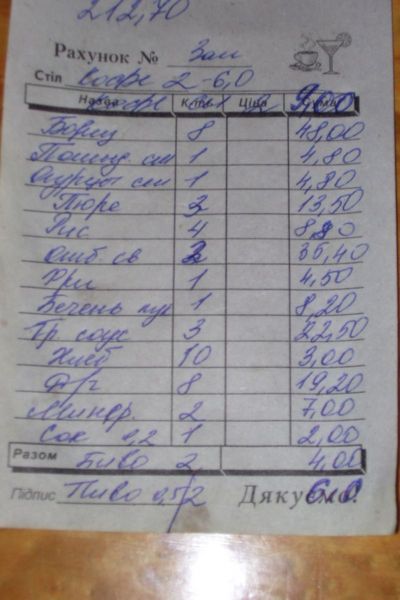 212,70
Рахунок № Зал
Стіл кофе 2-6,0
Назва К-ть Ціна Сума 9,00
Борщ 8 48,00
Помид. сал 1 4,80
Огурцы сал 1 4,80
Пюре 3 13,50
Рис 4 8,80
Отб. св 3 35,40
Фри 1 4,50
Печень кур 1 8,20
Гр. соус 3 22,50
Хлеб 10 3,00
8 19,20
Минер. 2 7,00
Сок 0,2 1 2,00
Разом Пиво 2 4,00
Підпис Пиво 0,5/2 Дякуємо! 6,0